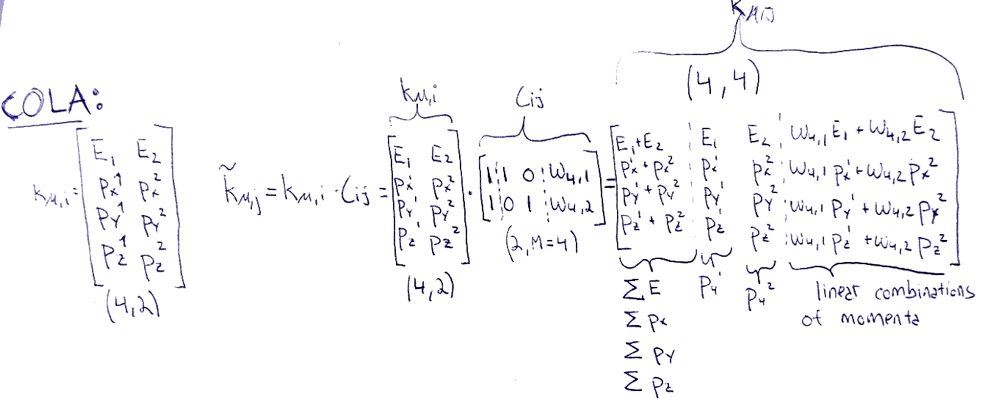 COLA:
k_{μ,i} = [E_1 E_2; p_x^1 p_x^2; p_y^1 p_y^2; p_z^1 p_z^2]
(4,2)
k̃_{μ,j} = k_{μ,i} · C_{ij} = [E_1 E_2; p_x^1 p_x^2; p_y^1 p_y^2; p_z^1 p_z^2] · [1 1 0 ω_{4,1}; 1 0 1 ω_{4,2}] =
k_{μ,i}
(4,2)
C_{ij}
(2, M=4)
k̃_{μ,ij}
(4,4)
[E_1+E_2 E_1 E_2 ω_{4,1} E_1 + ω_{4,2} E_2
p_x^1 + p_x^2 p_x^1 p_x^2 ω_{4,1} p_x^1 + ω_{4,2} p_x^2
p_y^1 + p_y^2 p_y^1 p_y^2 ω_{4,1} p_y^1 + ω_{4,2} p_y^2
p_z^1 + p_z^2 p_z^1 p_z^2 ω_{4,1} p_z^1 + ω_{4,2} p_z^2]
Σ E
Σ px
Σ py
Σ pz
p_μ^1
p_μ^2
linear combinations
of momenta